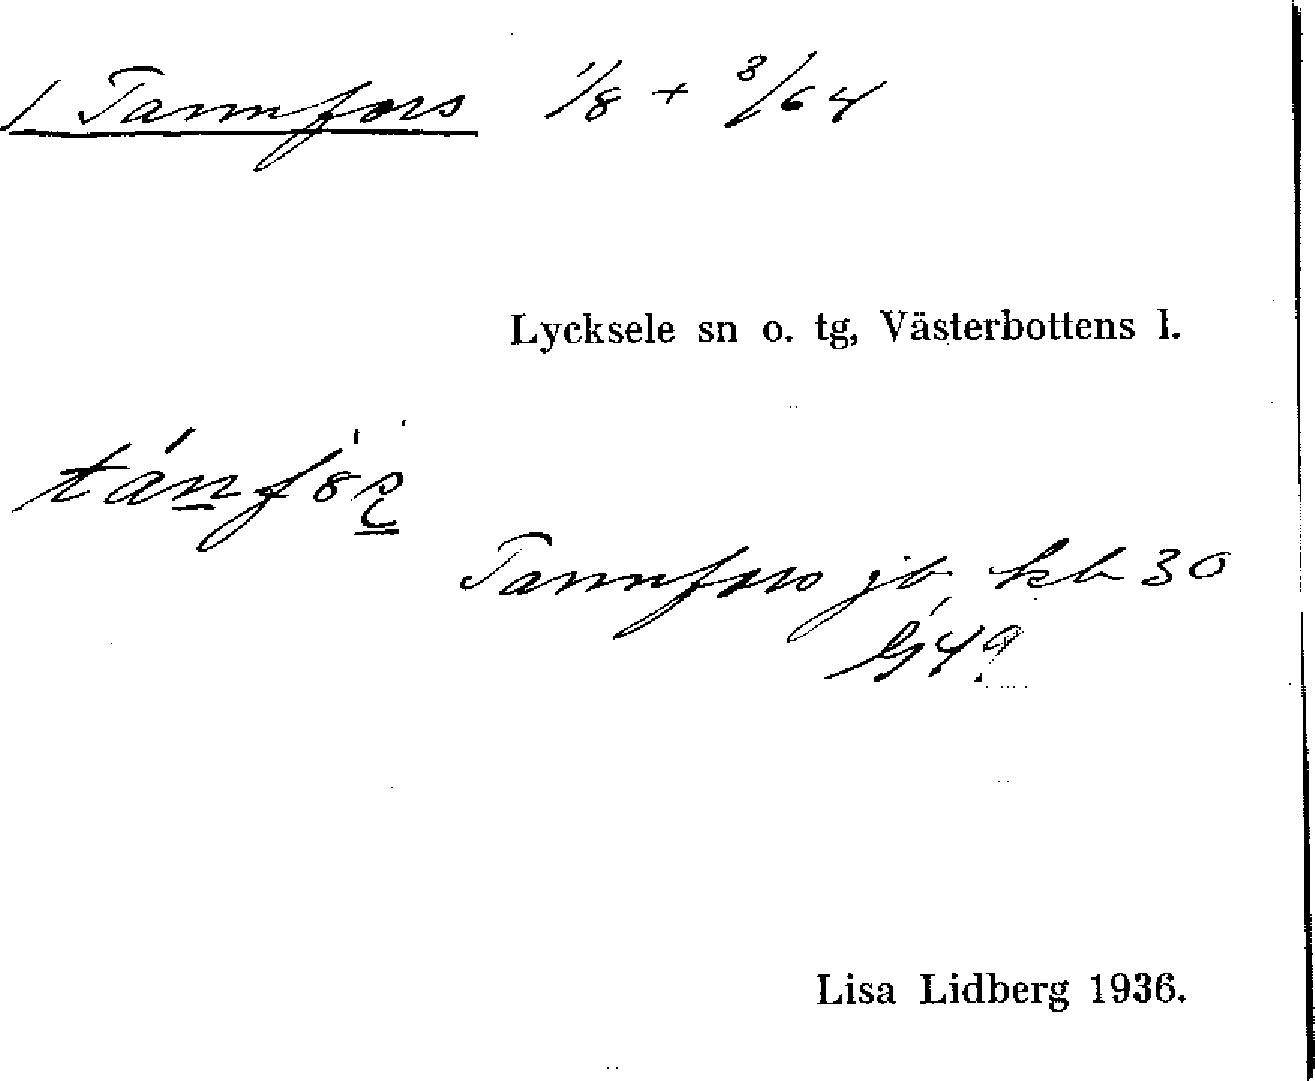 1 Tannfors 1/8 + 3/64
Lycksele sn o. tg, Västerbottens l.
Tannfors jb kb 30
G 49
Lisa Lidberg 1936.